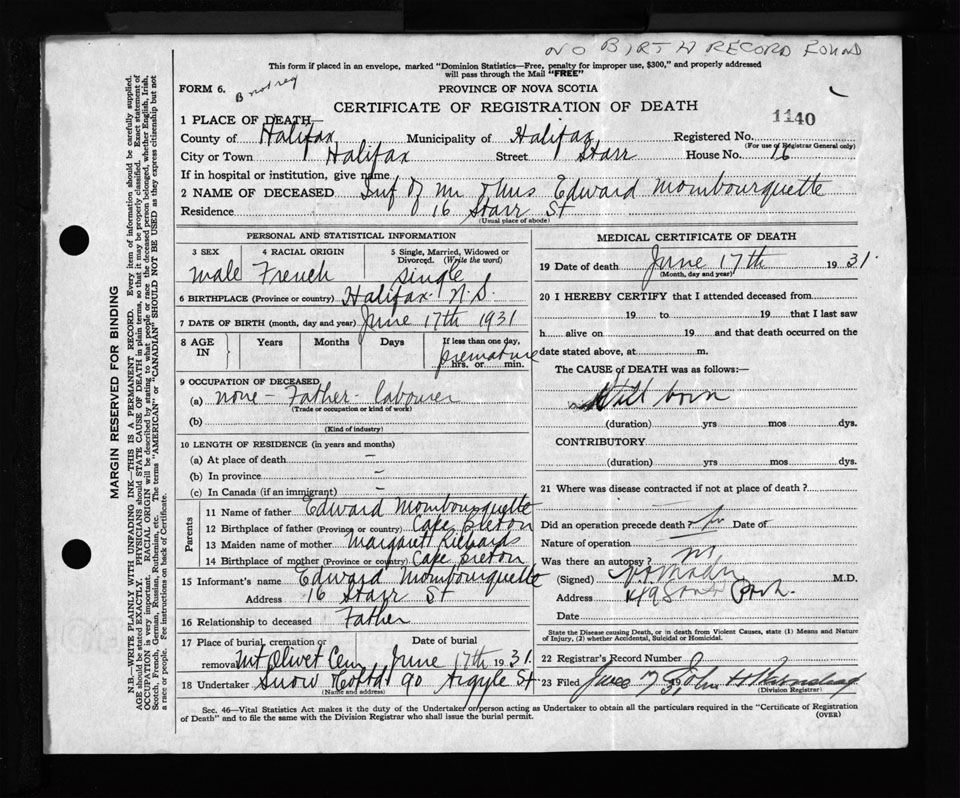 NO BIRTH RECORD FOUND
This form if placed in an envelope, marked "Dominion Statistics—Free, penalty for improper use, $300," and properly addressed
will pass through the Mail "FREE"
FORM 6.
PROVINCE OF NOVA SCOTIA
CERTIFICATE OF REGISTRATION OF DEATH
1140
1 PLACE OF DEATH—
County of Halifax Municipality of Halifax Registered No.
(For use of Registrar General only)
City or Town Halifax Street Starr House No. 16
If in hospital or institution, give name
2 NAME OF DECEASED Inf of Mr & Mrs Edward Mombourquette
Residence 16 Starr St
(Usual place of abode)
PERSONAL AND STATISTICAL INFORMATION
3 SEX 4 RACIAL ORIGIN 5 Single, Married, Widowed or
Divorced. (Write the word)
Male French Single
6 BIRTHPLACE (Province or country) Halifax N.S.
7 DATE OF BIRTH (month, day and year) June 17th 1931
8 AGE IN Years Months Days If less than one day,
premature
hrs. or min.
9 OCCUPATION OF DECEASED
(a) none - Father - labourer
(Trade or occupation or kind of work)
(b)
(Kind of industry)
10 LENGTH OF RESIDENCE (in years and months)
(a) At place of death —
(b) In province —
(c) In Canada (if an immigrant) —
Parents
11 Name of father Edward Mombourquette
12 Birthplace of father (Province or country) Cape Breton
13 Maiden name of mother Margaret Richards
14 Birthplace of mother (Province or country) Cape Breton
15 Informant's name Edward Mombourquette
Address 16 Starr St
16 Relationship to deceased Father
17 Place of burial, cremation or Date of burial
removal Mt Olivet Cem June 17th 1931.
18 Undertaker Snow & Co Ltd 90 Argyle St
(Name and address)
MEDICAL CERTIFICATE OF DEATH
19 Date of death June 17th 1931.
(Month, day and year)
20 I HEREBY CERTIFY that I attended deceased from
19 to 19 that I last saw
h alive on 19 and that death occurred on the
date stated above, at m.
The CAUSE of DEATH was as follows:—
Still born
(duration) yrs mos dys.
CONTRIBUTORY
(duration) yrs mos dys.
21 Where was disease contracted if not at place of death?
Did an operation precede death? no Date of
Nature of operation
Was there an autopsy? no
(Signed) M.D.
Address
Date
State the Disease causing Death, or in death from Violent Causes, state (1) Means and Nature
of Injury, (2) whether Accidental, Suicidal or Homicidal.
22 Registrar's Record Number
23 Filed June 17 1931 John H
(Division Registrar)
Sec. 46—Vital Statistics Act makes it the duty of the Undertaker or person acting as Undertaker to obtain all the particulars required in the "Certificate of Registration
of Death" and to file the same with the Division Registrar who shall issue the burial permit.
(OVER)
MARGIN RESERVED FOR BINDING
N.B.—WRITE PLAINLY WITH UNFADING INK—THIS IS A PERMANENT RECORD. Every item of information should be carefully supplied.
AGE should be stated EXACTLY. PHYSICIANS should STATE CAUSE OF DEATH in plain terms, so that it may be properly classified. Exact statement of
OCCUPATION is very important. RACIAL ORIGIN will be described by stating to what people or race the deceased person belonged, whether English, Irish,
Scotch, French, German, Russian, Ruthenian, etc. The terms "AMERICAN" or "CANADIAN" SHOULD NOT BE USED as they express citizenship but not
a race or people. See instructions on back of Certificate.